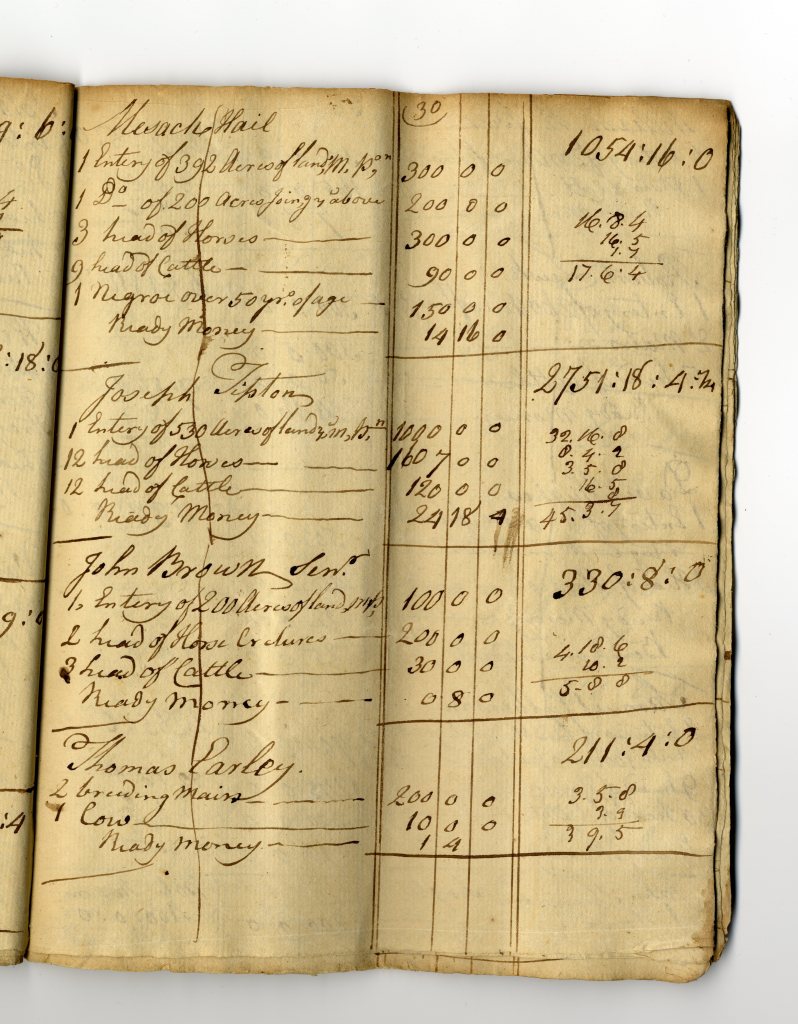 9: 6:
4
:18:0
9:0
:4
30
Mesach Hail 1054:16:0
1 Entery of 392 Acres of land 300 0 0
1 Do of 200 Acres Joing ye above 200 0 0
3 head of Horses 300 0 0
9 head of Cattle 90 0 0
1 Negroe over 50 yrs. of age 150 0 0
Ready Money 14 16 0
16.8.4
16.5
17.6.4
Joseph Tipton 2751:18:4
1 Entery of 530 Acres of land 1000 0 0
12 head of Horses 1607 0 0
12 head of Cattle 120 0 0
Ready Money 24 18 4
32.16.8
8.4.2
3.5.8
16.5
45.3.7
John Brown Senr. 330:8:0
1, Entery of 200 Acres of land 100 0 0
2 head of Horse Cretures 200 0 0
3 head of Cattle 30 0 0
Ready Money 0 8 0
4.18.6
10.2
5-8 8
Thomas Earley. 211:4:0
2 breeding Mairs 200 0 0
1 Cow 10 0 0
Ready Money 1 4
3.5.8
3.9
3 9.5